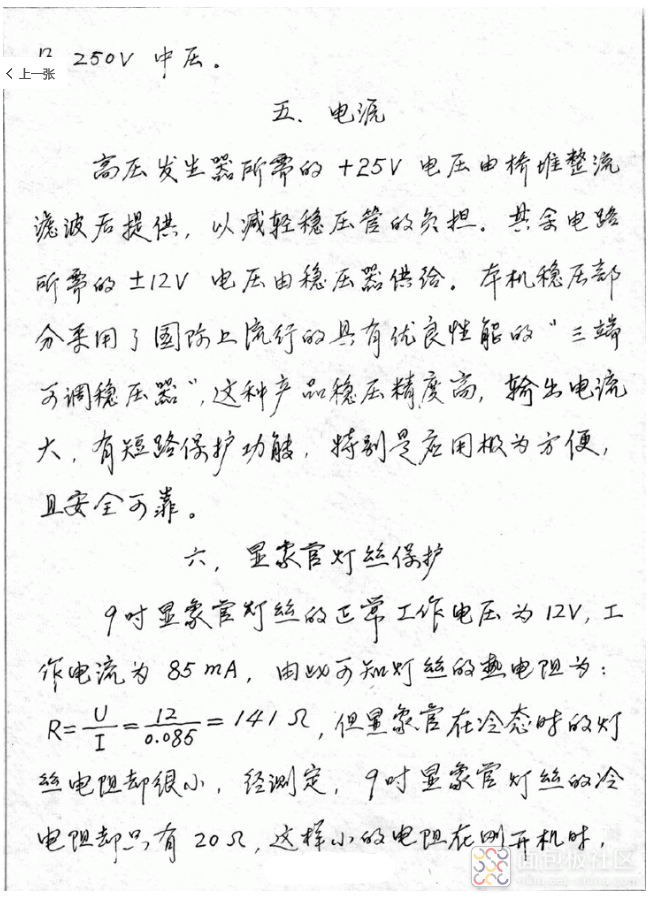 250V 中压。
上一张
五、电流
高压发生器所需的 +25V 电压由桥堆整流
滤波后提供，以减轻稳压管的负担。其余电路
所需的 ±12V 电压由稳压器供给。本机稳压部
分采用了国际上流行的具有优良性能的“三端
可调稳压器”，这种产品稳压精度高，输出电流
大，有短路保护功能，特别是应用极为方便，
且安全可靠。
六、显象官灯丝保护
9吋显象官灯丝的正常工作电压为12V，工
作电流为 85 mA，由此可知灯丝的热电阻为：
R=U/I=12/0.085=141 Ω，但显象官在冷态时的灯
丝电阻却很小，经测定，9吋显象官灯丝的冷
电阻却只有 20Ω，这样小的电阻在刚开机时，
面包板社区